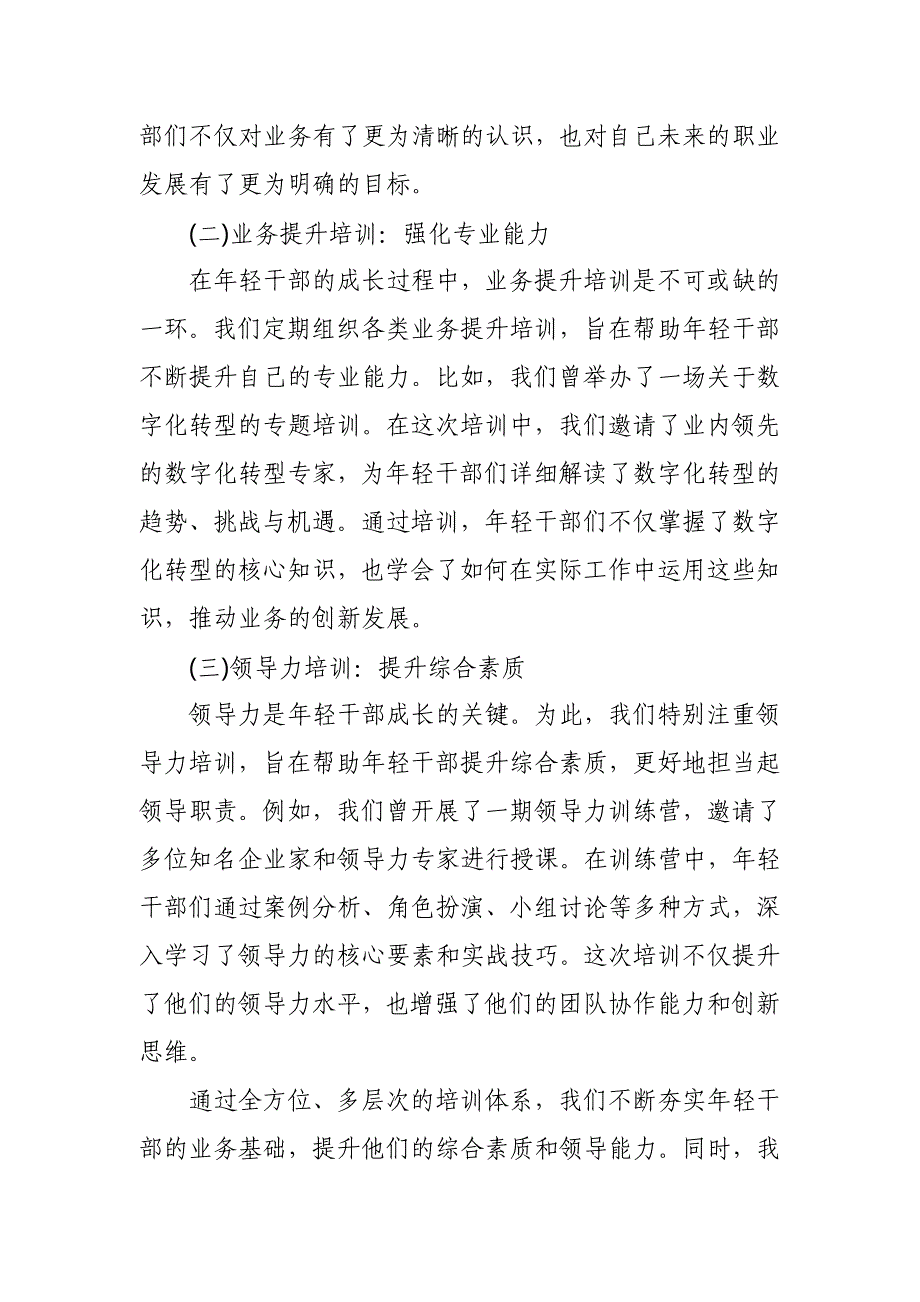 部们不仅对业务有了更为清晰的认识，也对自己未来的职业
发展有了更为明确的目标。
(二)业务提升培训：强化专业能力
在年轻干部的成长过程中，业务提升培训是不可或缺的
一环。我们定期组织各类业务提升培训，旨在帮助年轻干部
不断提升自己的专业能力。比如，我们曾举办了一场关于数
字化转型的专题培训。在这次培训中，我们邀请了业内领先
的数字化转型专家，为年轻干部们详细解读了数字化转型的
趋势、挑战与机遇。通过培训，年轻干部们不仅掌握了数字
化转型的核心知识，也学会了如何在实际工作中运用这些知
识，推动业务的创新发展。
(三)领导力培训：提升综合素质
领导力是年轻干部成长的关键。为此，我们特别注重领
导力培训，旨在帮助年轻干部提升综合素质，更好地担当起
领导职责。例如，我们曾开展了一期领导力训练营，邀请了
多位知名企业家和领导力专家进行授课。在训练营中，年轻
干部们通过案例分析、角色扮演、小组讨论等多种方式，深
入学习了领导力的核心要素和实战技巧。这次培训不仅提升
了他们的领导力水平，也增强了他们的团队协作能力和创新
思维。
通过全方位、多层次的培训体系，我们不断夯实年轻干
部的业务基础，提升他们的综合素质和领导能力。同时，我